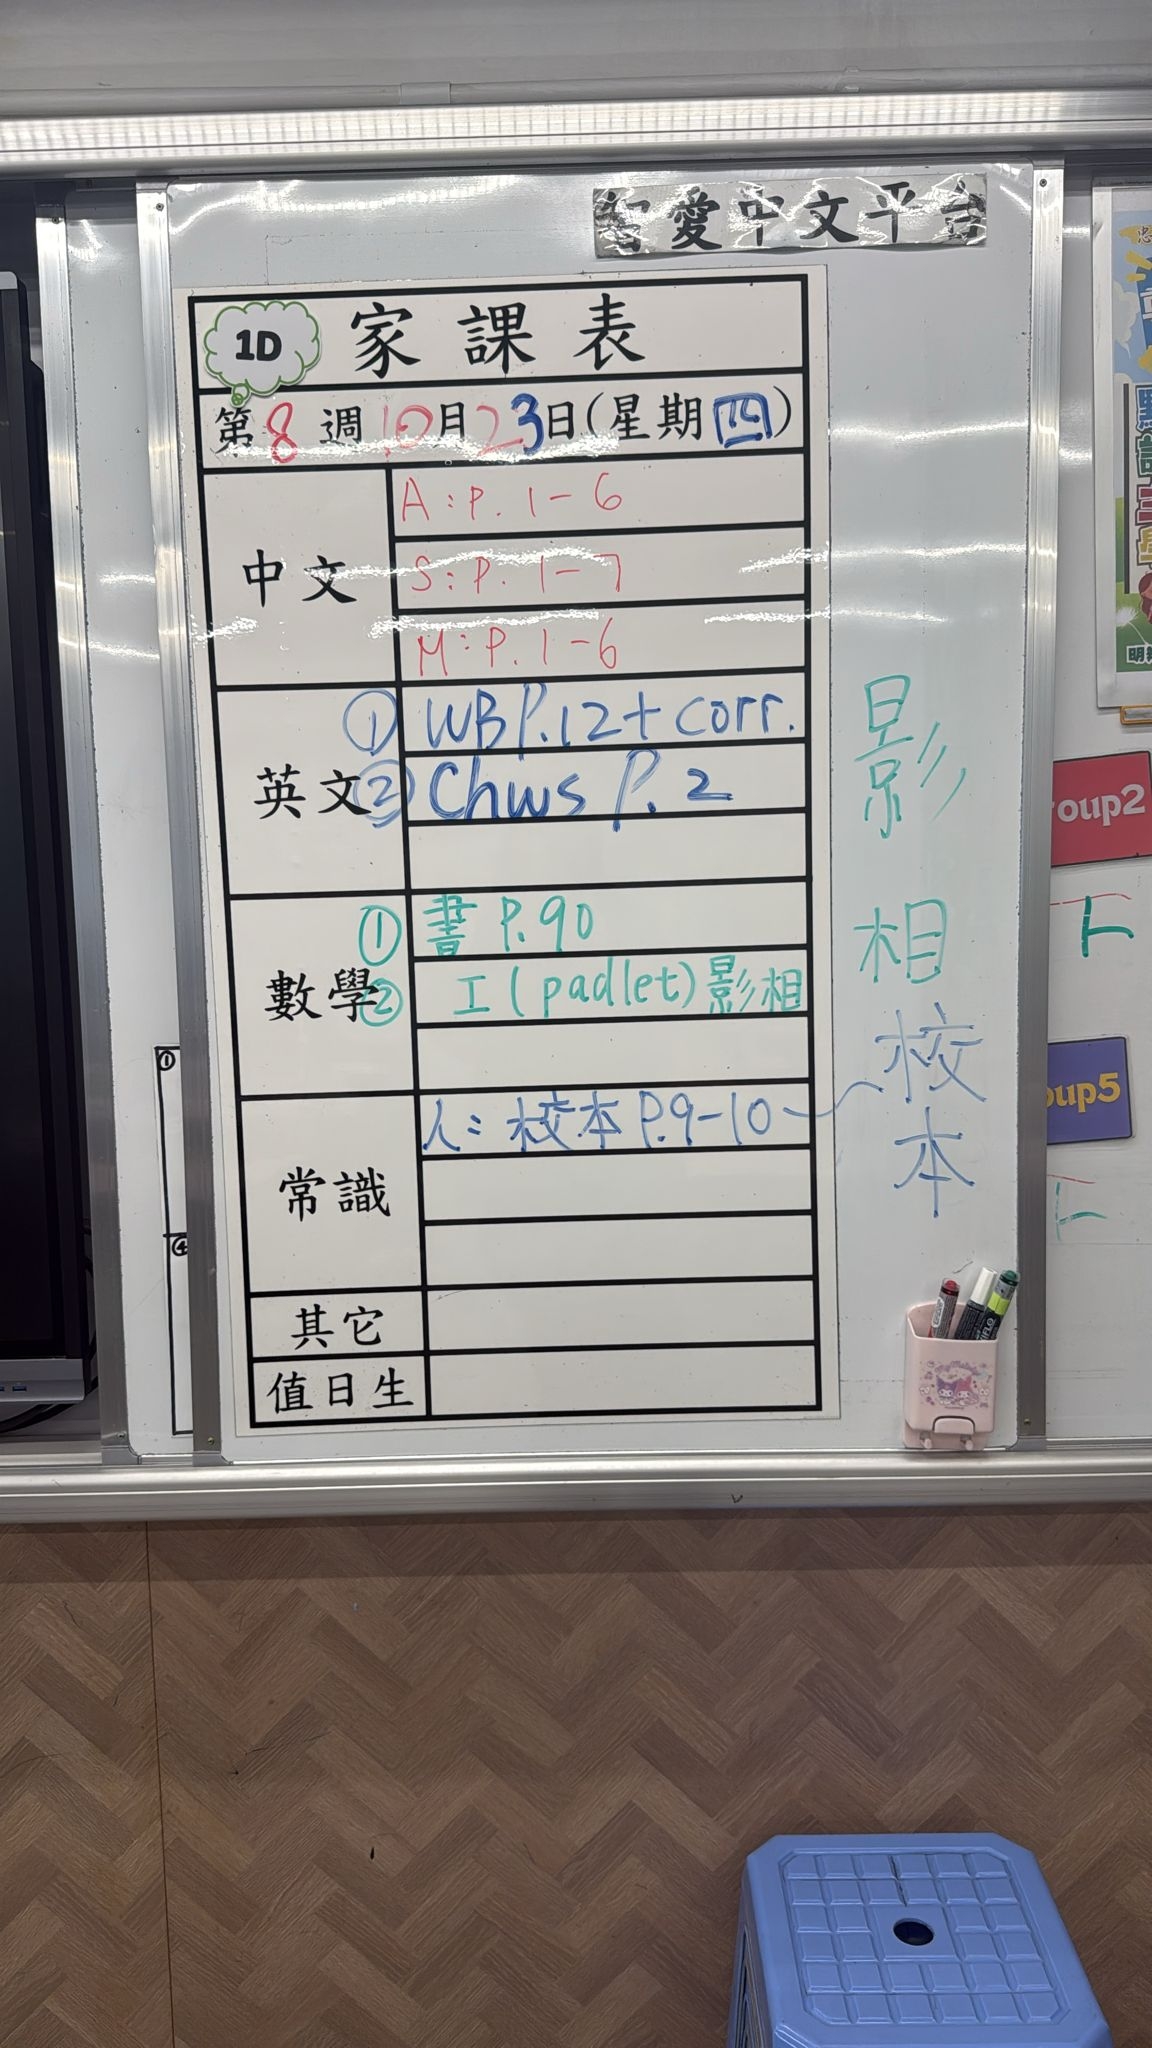 智愛中文平台
1D 家課表
第8週10月23日(星期四)
中文
A:P.1-6
S:P.1-7
M:P.1-6
英文
① WB P.12+corr.
② Chws P.2
數學
① 書 P.90
② 工(padlet)影相
常識
人:校本P.9-10
其它
值日生
影相
校本
oup2
oup5
①
④